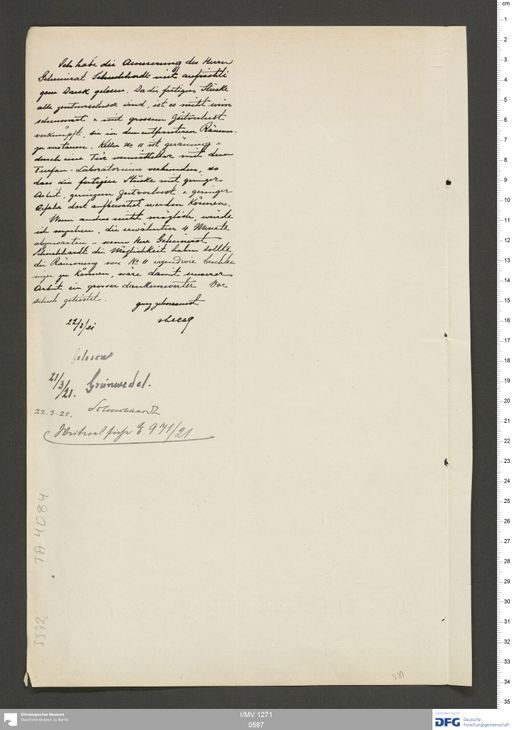 Ich habe die Äusserung des Herrn
Geheimrat Schuchhardt mit aufrichti
gem Dank gelesen. Da die fertigen Stücke
alle zentnerschwer sind, ist es nicht nur
schwierig u. mit grossem Zeitverlust
verknüpft, sie in den entfernteren Räumen
zu verstauen. Keller No 11 ist geräumig u
durch eine Türe unmittelbar mit dem
Turfan-Laboratorium verbunden, so
dass die fertigen Stücke mit geringer
Arbeit, geringem Zeitverlust u. geringer
Gefahr dort aufbewahrt werden können.
Wenn anders nicht möglich, würde
ich vorziehen, die erwähnten 4 Monate
abzuwarten – wenn Herr Geheimrat
Schuchhardt die Möglichkeit haben sollte,
die Räumung von No 11 irgendwie beschleu
nigen zu können, wäre damit unserer
Arbeit ein grosser dankenswerter Vor
schub geleistet.
ganz gehorsamst
22/3/21 v Lecoq
Gelesen
21/3/21. Grünwedel.
22.3.21. Schuchhardt
E. 971/21
TA 4084
5572
587
I/MV 1271
0587
Ethnologisches Museum
Staatliche Museen zu Berlin
DFG Deutsche
Forschungsgemeinschaft
cm
1
2
3
4
5
6
7
8
9
10
11
12
13
14
15
16
17
18
19
20
21
22
23
24
25
26
27
28
29
30
31
32
33
34
35